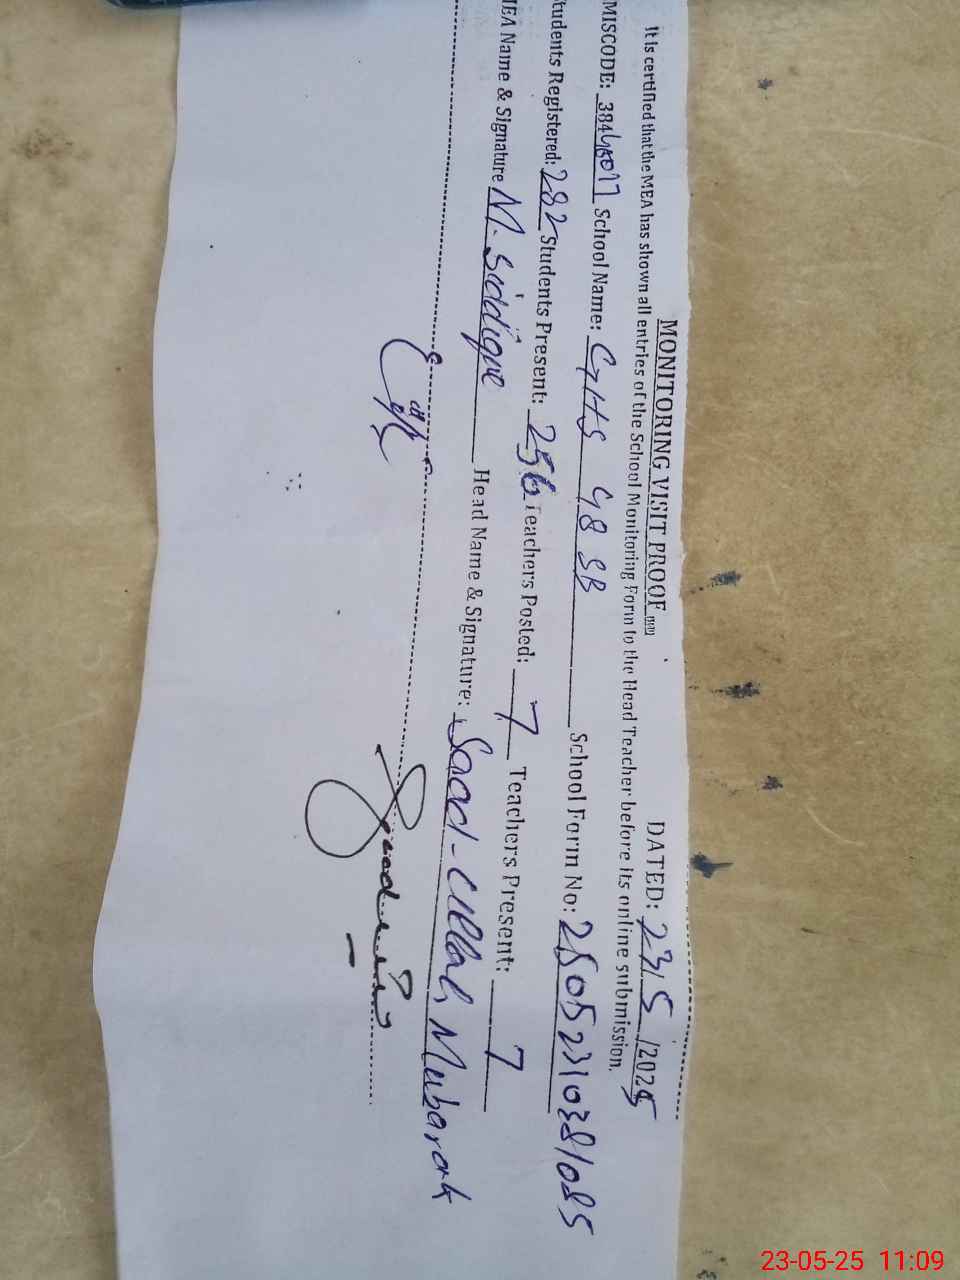 MONITORING VISIT PROOF DATED: 23/5/2025
It is certified that the MEA has shown all entries of the School Monitoring Form to the Head Teacher before its online submission.
MISCODE: School Name: GHS 48 SB School Form No: 25052310381085
tudents Registered: 282 Students Present: 256 Teachers Posted: 7 Teachers Present: 7
MEA Name & Signature M. Siddique Head Name & Signature: Saad-ullah Mubarak
23-05-25 11:09